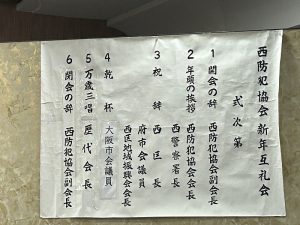 西防犯協会 新年互礼会
式次第
1 開会の辞 西防犯協会副会長
2 年頭の挨拶 西防犯協会会長
西警察署長
3 祝辞 西区長
府市会議員
西区地域振興会会長
4 乾杯 大阪市会議員
5 万歳三唱 歴代会長
6 閉会の辞 西防犯協会副会長